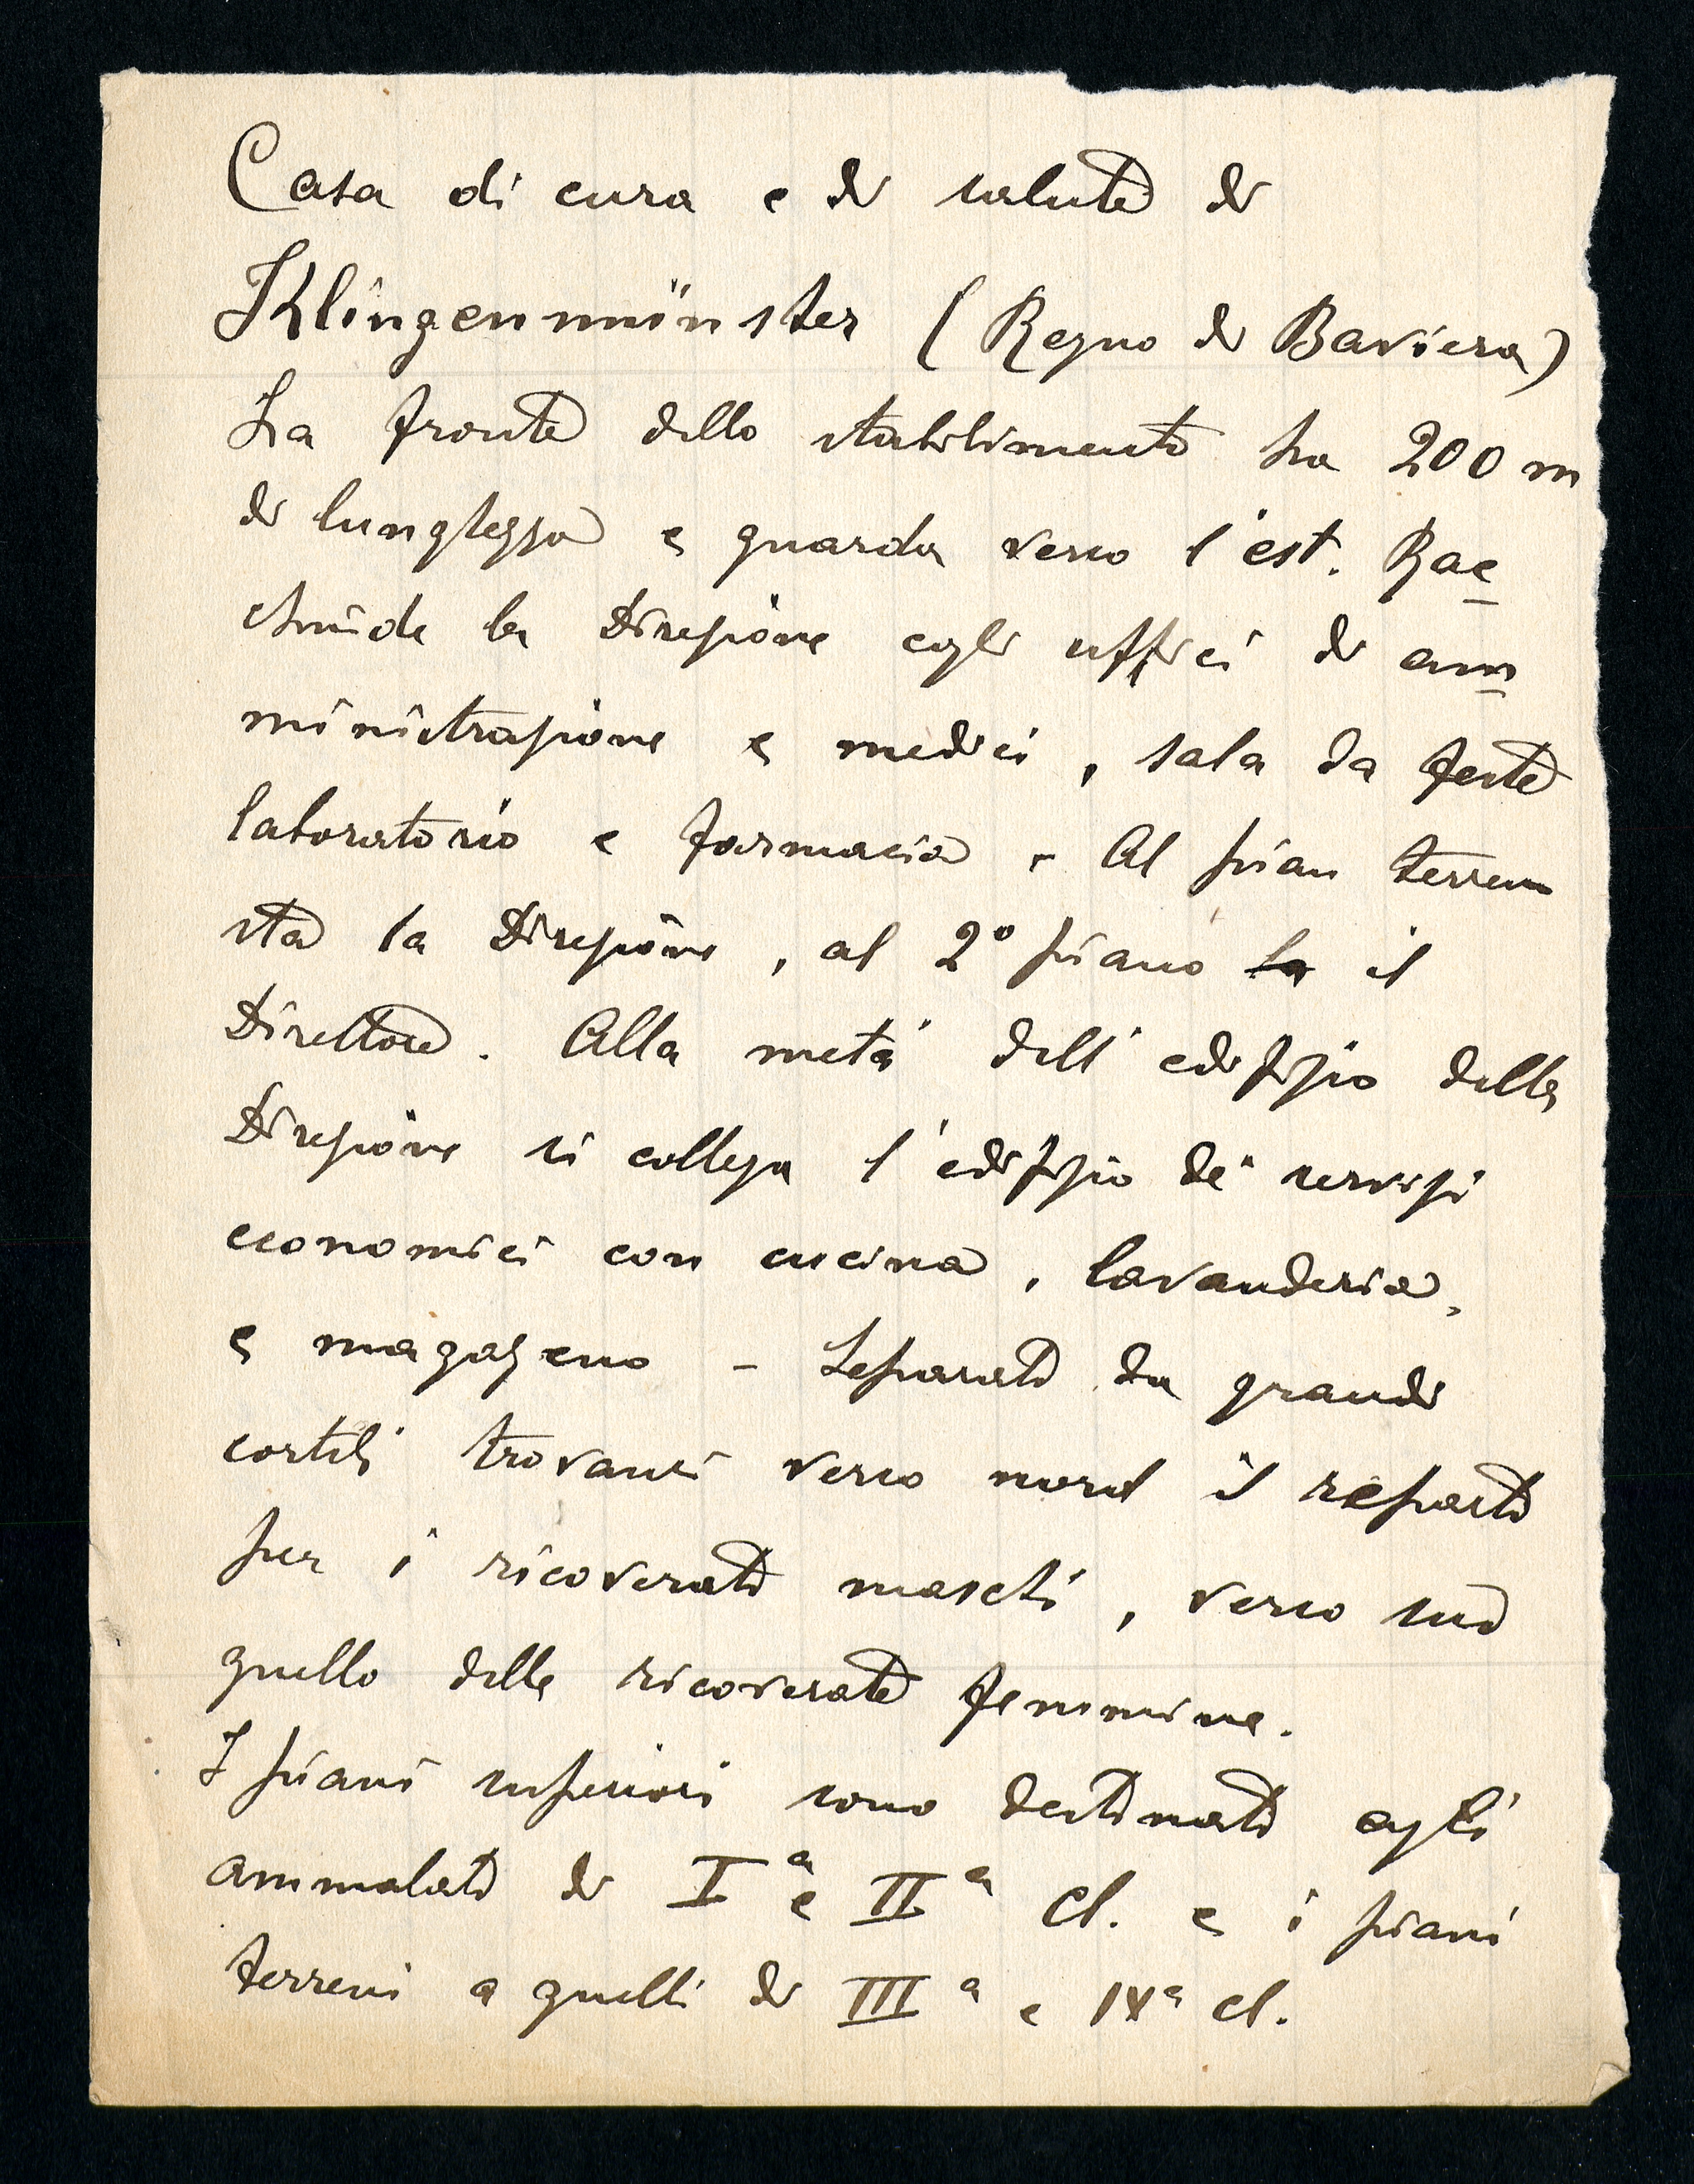 Casa di cura e di salute di
Klingenmünster (Regno di Baviera)
La fronte dello stabilimento ha 200 m
di lunghezza e guarda verso l'est. Rac
chiude la Direzione e gli uffici di am
ministrazione e medici, sala da feste
laboratorio e farmacia - Al pian terreno
sta la Direzione, al 2º piano la il
Direttore. Alla metà dell'edifizio della
Direzione si collega l'edifizio de' servizi
economici con cucina, lavanderia,
e magazeno - Separati da grandi
cortili trovansi verso nord il reparto
per i ricoverati maschi, verso sud
quello delle ricoverate femmine.
I piani superiori sono destinati agli
ammalati di Iª e IIª cl. e i piani
terreni a quelli di IIIª e IVª cl.